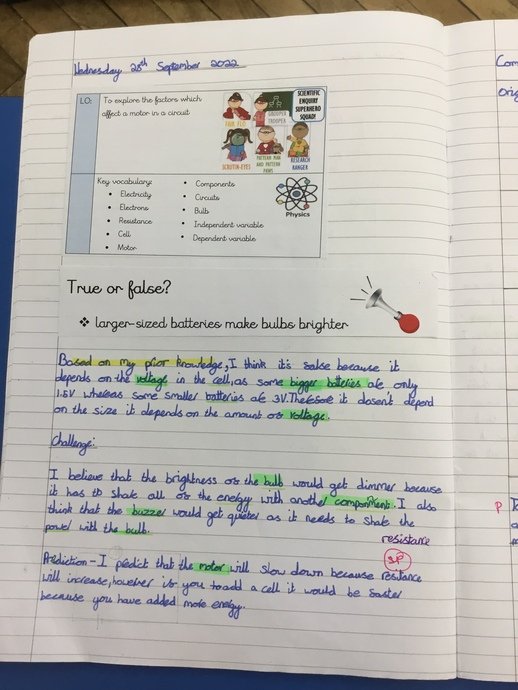 Wednesday 28th September 2022
LO:
To explore the factors which
affect a motor in a circuit
FAIR FLO
GROUPER
TROOPER
SCIENTIFIC
ENQUIRY
SUPERHERO
SQUAD!
SCRUTIN-EYES
PATTERN MAN
AND PATTERN
PAWS
RESEARCH
RANGER
Key vocabulary:
• Electricity
• Electrons
• Resistance
• Cell
• Motor
• Components
• Circuits
• Bulb
• Independent variable
• Dependent variable
Physics
True or false?
❖ larger-sized batteries make bulbs brighter
Based on my prior knowledge, I think it's false because it
depends on the voltage in the cell, as some bigger batteries are only
1.5V whereas some smaller batteries are 3V. Therefore it doesn't depend
on the size it depends on the amount of voltage.
Challenge:
I believe that the brightness of the bulb would get dimmer because
it has to share all of the energy with another component. I also
think that the buzzer would get quieter as it needs to share the
power with the bulb.
resistance
sp
Prediction - I predict that the motor will slow down because resitance
will increase, however if you to add a cell it would be faster
because you have added more energy.
Com
P